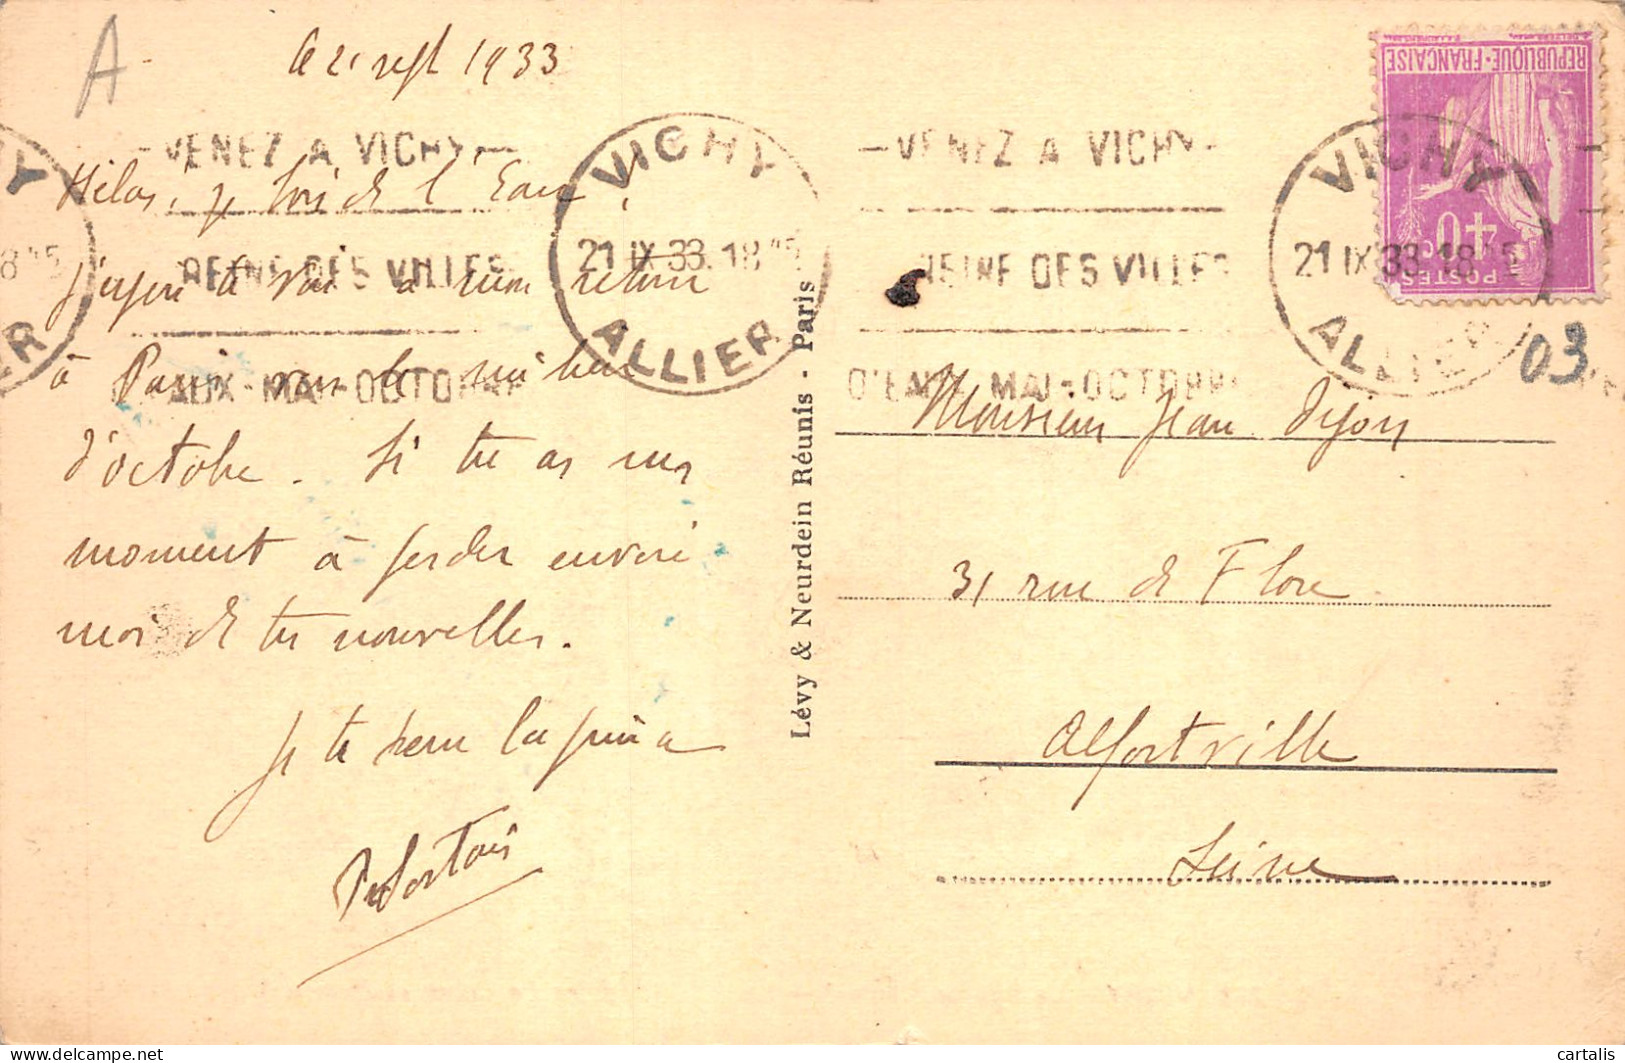 A
le 21 sept 1933
Hélas, je bois de l'Eau!
J'espère te voir à mon retour
à Paris vers le milieu
d'octobre. Si tu as un
moment à perdre envoie
moi de tes nouvelles.
Je te serre la pince
- VENEZ A VICHY -
REINE DES VILLES
D'EAUX - MAI - OCTOBRE
VICHY
21 IX 33. 18
ALLIER
Lévy & Neurdein Réunis - Paris
- VENEZ A VICHY -
REINE DES VILLES
D'EAUX MAI - OCTOBRE
VICHY
21 IX 33 18
ALLIER
REPUBLIQUE · FRANÇAISE
40c
POSTES
03
Monsieur Jean Dijon
31 rue de Flore
Alfortville
Seine
cartalis
www.delcampe.net